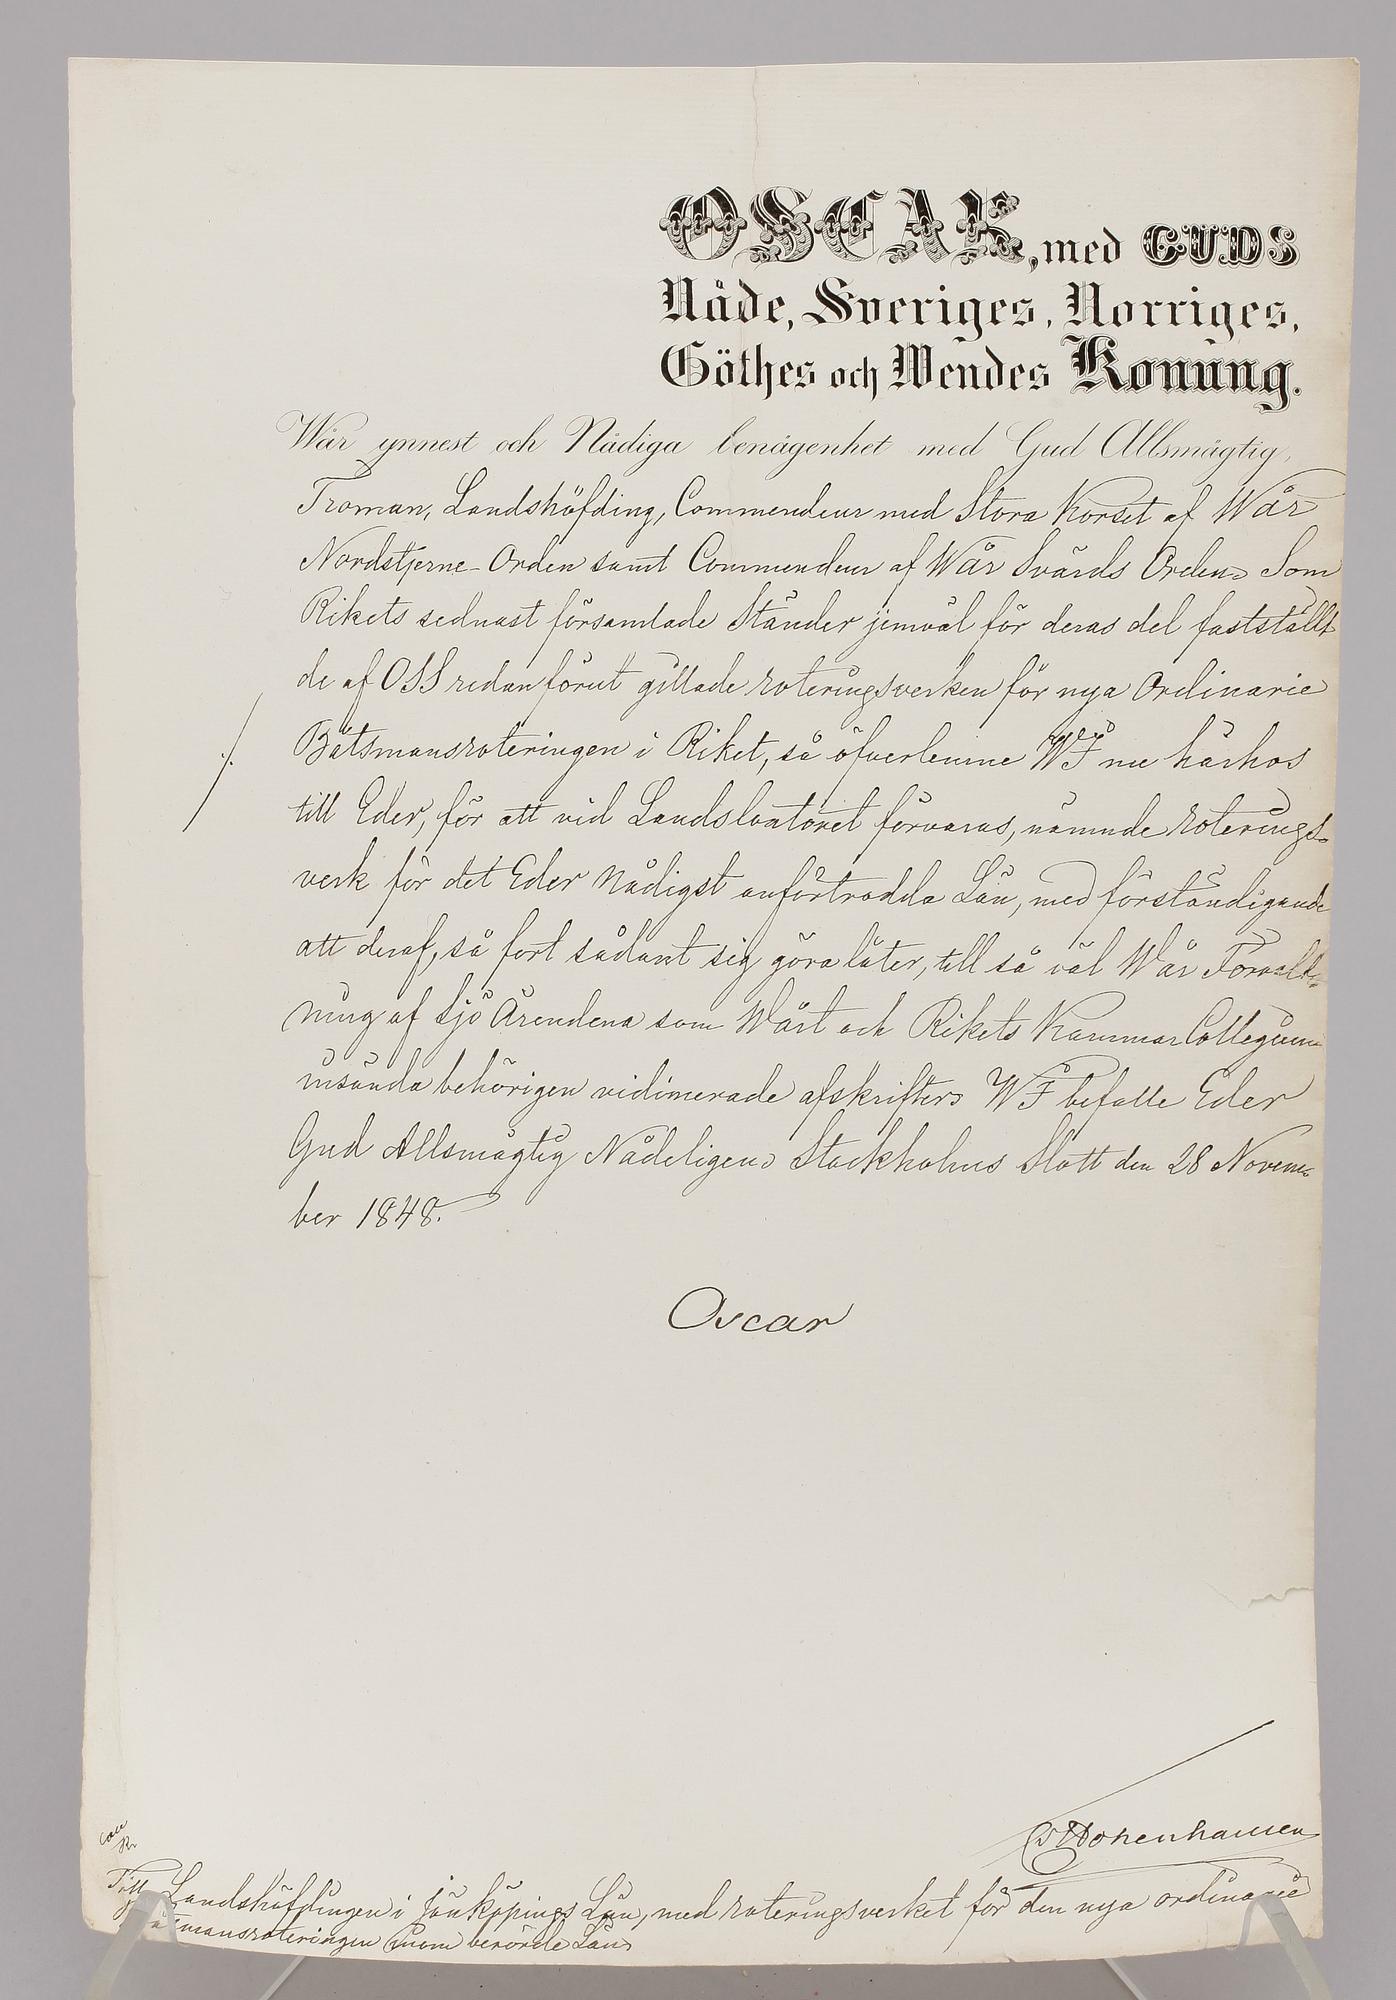 OSCAR, med GUDS
Nåde, Sveriges, Norriges,
Göthes och Wendes Konung.
Wår ynnest och Nådiga benägenhet med Gud Allsmägtig,
Troman, Landshöfding, Commendeur med Stora Korset af Wår
Nordstjerne-Orden samt Commendeur af Wår Svärds Orden. Som
Rikets sednast församlade Ständer jemväl för deras del fastställt
de af OSS redan förut gillade roteringsverken för nya Ordinarie
Båtsmansroteringen i Riket, så öfverlemne WJ nu härhos
till Eder, för att vid Landskontoret förvaras, nämnde roterings-
verk för det Eder Nådigst anförtrodda Län, med förständigande
att deraf, så fort sådant sig göra låter, till så väl Wår Förvalt-
ning af Sjö Ärendena som Wårt och Rikets Kammar Collegium
insända behörigen vidimerade afskrifter. WJ befalle Eder
Gud Allsmägtig Nådeligen. Stockholms Slott den 28 Novem-
ber 1848.
Oscar
v Hohenhausen
Till Landshöfdingen i Jönköpings Län, med roteringsverket för den nya ordinarie
Båtmansroteringen inom berörde Län.